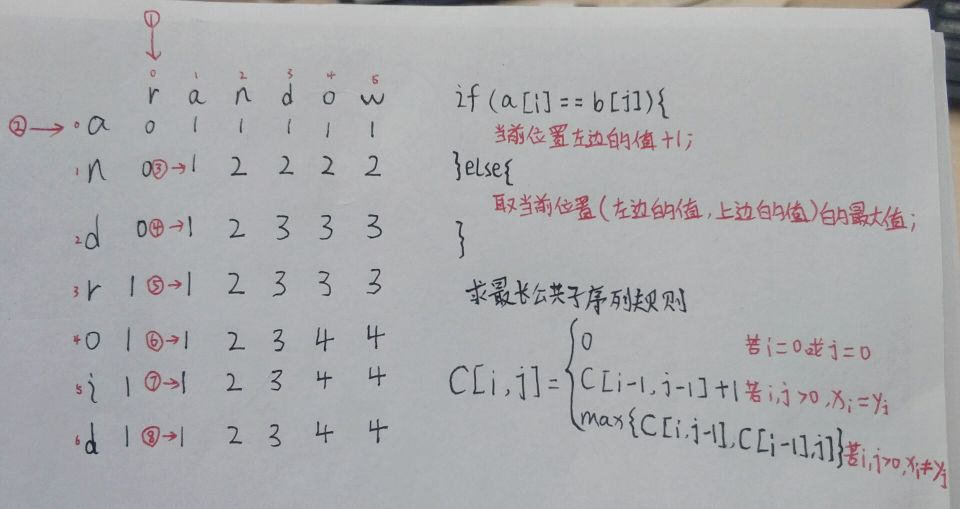 ①
0 1 2 3 4 5
r a n d o w
② → 0 a 0 1 1 1 1 1
1 n 0 ③→ 1 2 2 2 2
2 d 0 ④→ 1 2 3 3 3
3 r 1 ⑤→ 1 2 3 3 3
4 o 1 ⑥→ 1 2 3 4 4
5 i 1 ⑦→ 1 2 3 4 4
6 d 1 ⑧→ 1 2 3 4 4
if (a[i]==b[j]){
当前位置左边的值+1;
}else{
取当前位置(左边的值,上边的值)的最大值;
}
求最长公共子序列规则
C[i,j]={
0 若i=0或j=0
C[i-1,j-1]+1 若i,j>0,xi=yj
max{C[i,j-1],C[i-1],j]} 若i,j>0,xi≠yj